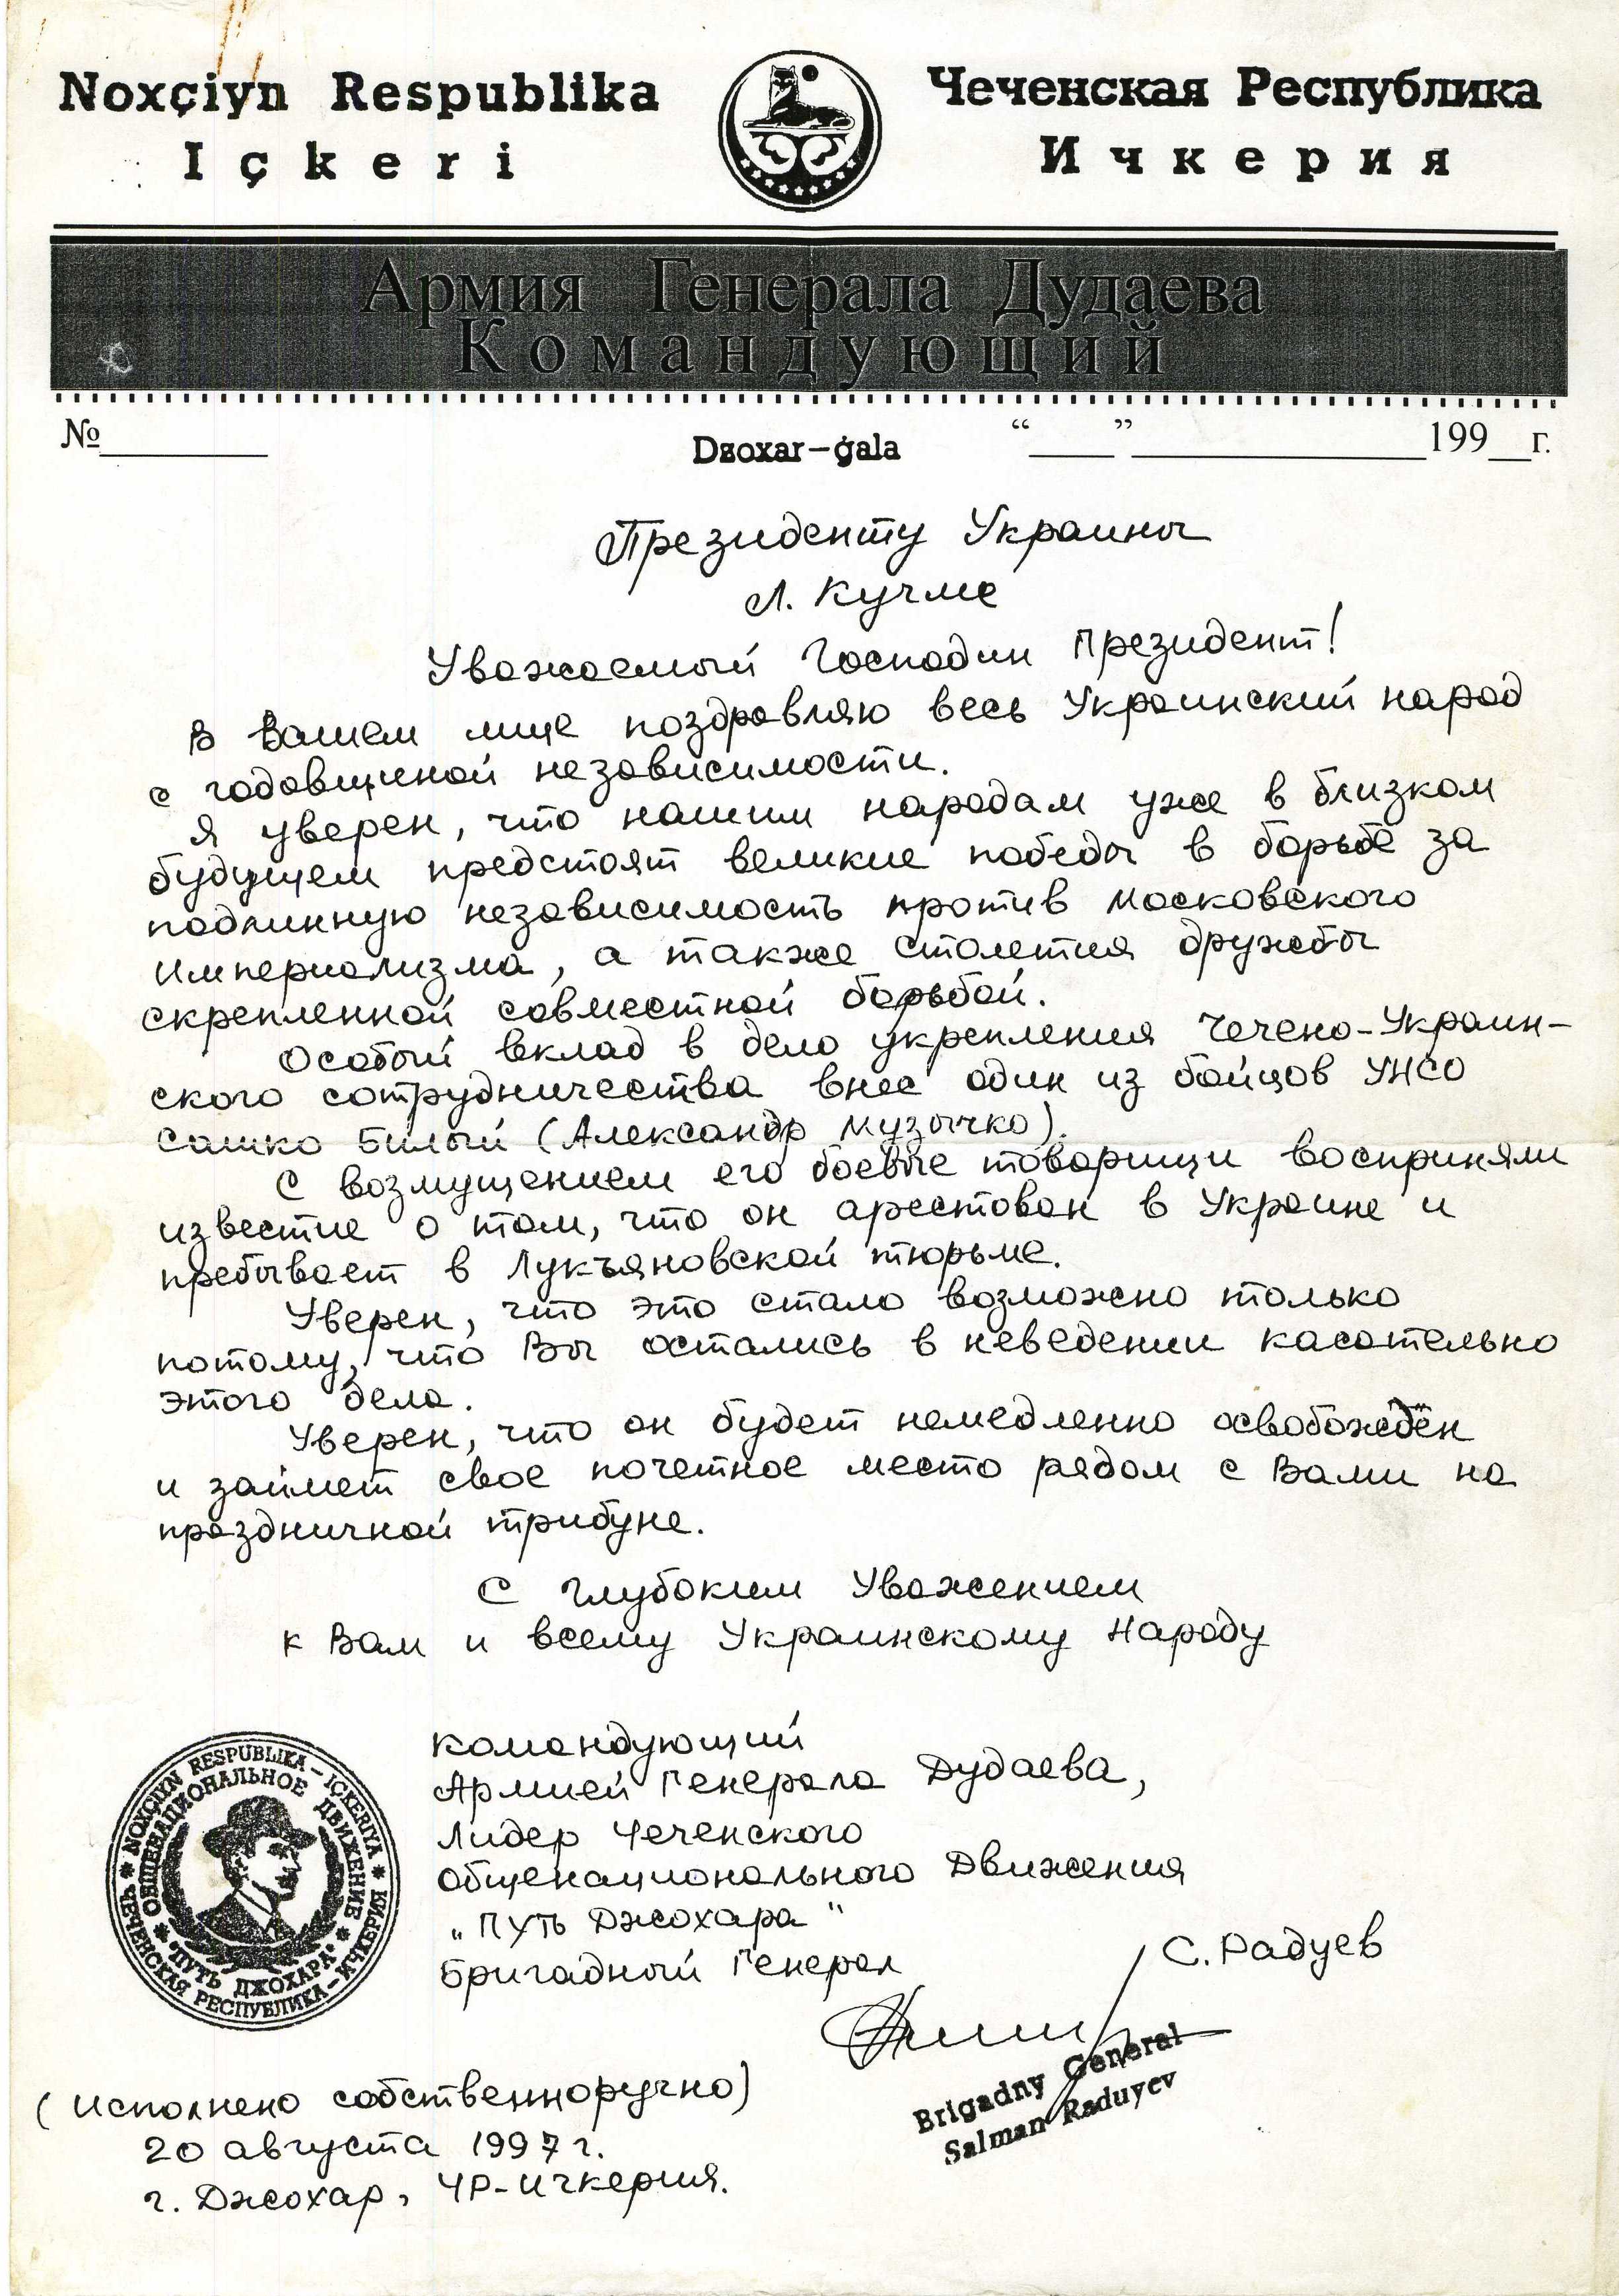 Noxçiyn Respublika
Içkeri
Чеченская Республика
Ичкерия
Армия Генерала Дудаева
Командующий
№
Dƶoxar-ġala
“ ” 199 г.
Президенту Украины
Л. Кучме
Уважаемый Господин Президент!
В Вашем лице поздравляю весь Украинский народ
с годовщиной независимости.
Я уверен, что нашим народам уже в близком
будущем предстоят великие победы в борьбе за
подлинную независимость против московского
империализма, а также столетия дружбы
скрепленной совместной борьбой.
Особый вклад в дело укрепления Чечено-Украин-
ского сотрудничества внес один из бойцов УНСО
Сашко Билый (Александр Музычко).
С возмущением его боевые товарищи восприняли
известие о том, что он арестован в Украине и
пребывает в Лукъяновской тюрьме.
Уверен, что это стало возможно только
потому, что Вы остались в неведении касательно
этого дела.
Уверен, что он будет немедленно освобождён
и займет свое почетное место рядом с Вами на
праздничной трибуне.
С глубоким Уважением
к Вам и всему Украинскому Народу
Командующий
Армией Генерала Дудаева,
Лидер Чеченского
Общенационального Движения
„Путь Джохара"
Бригадный Генерал
С. Радуев
NOXÇIYN RESPUBLIKA – IÇKERIYA
ЧЕЧЕНСКАЯ РЕСПУБЛИКА – ИЧКЕРИЯ
ОБЩЕНАЦИОНАЛЬНОЕ ДВИЖЕНИЕ
"ПУТЬ ДЖОХАРА"
Brigadny General
Salman Raduyev
(Исполнено собственноручно)
20 августа 1997 г.
г. Джохар, ЧР-Ичкерия.